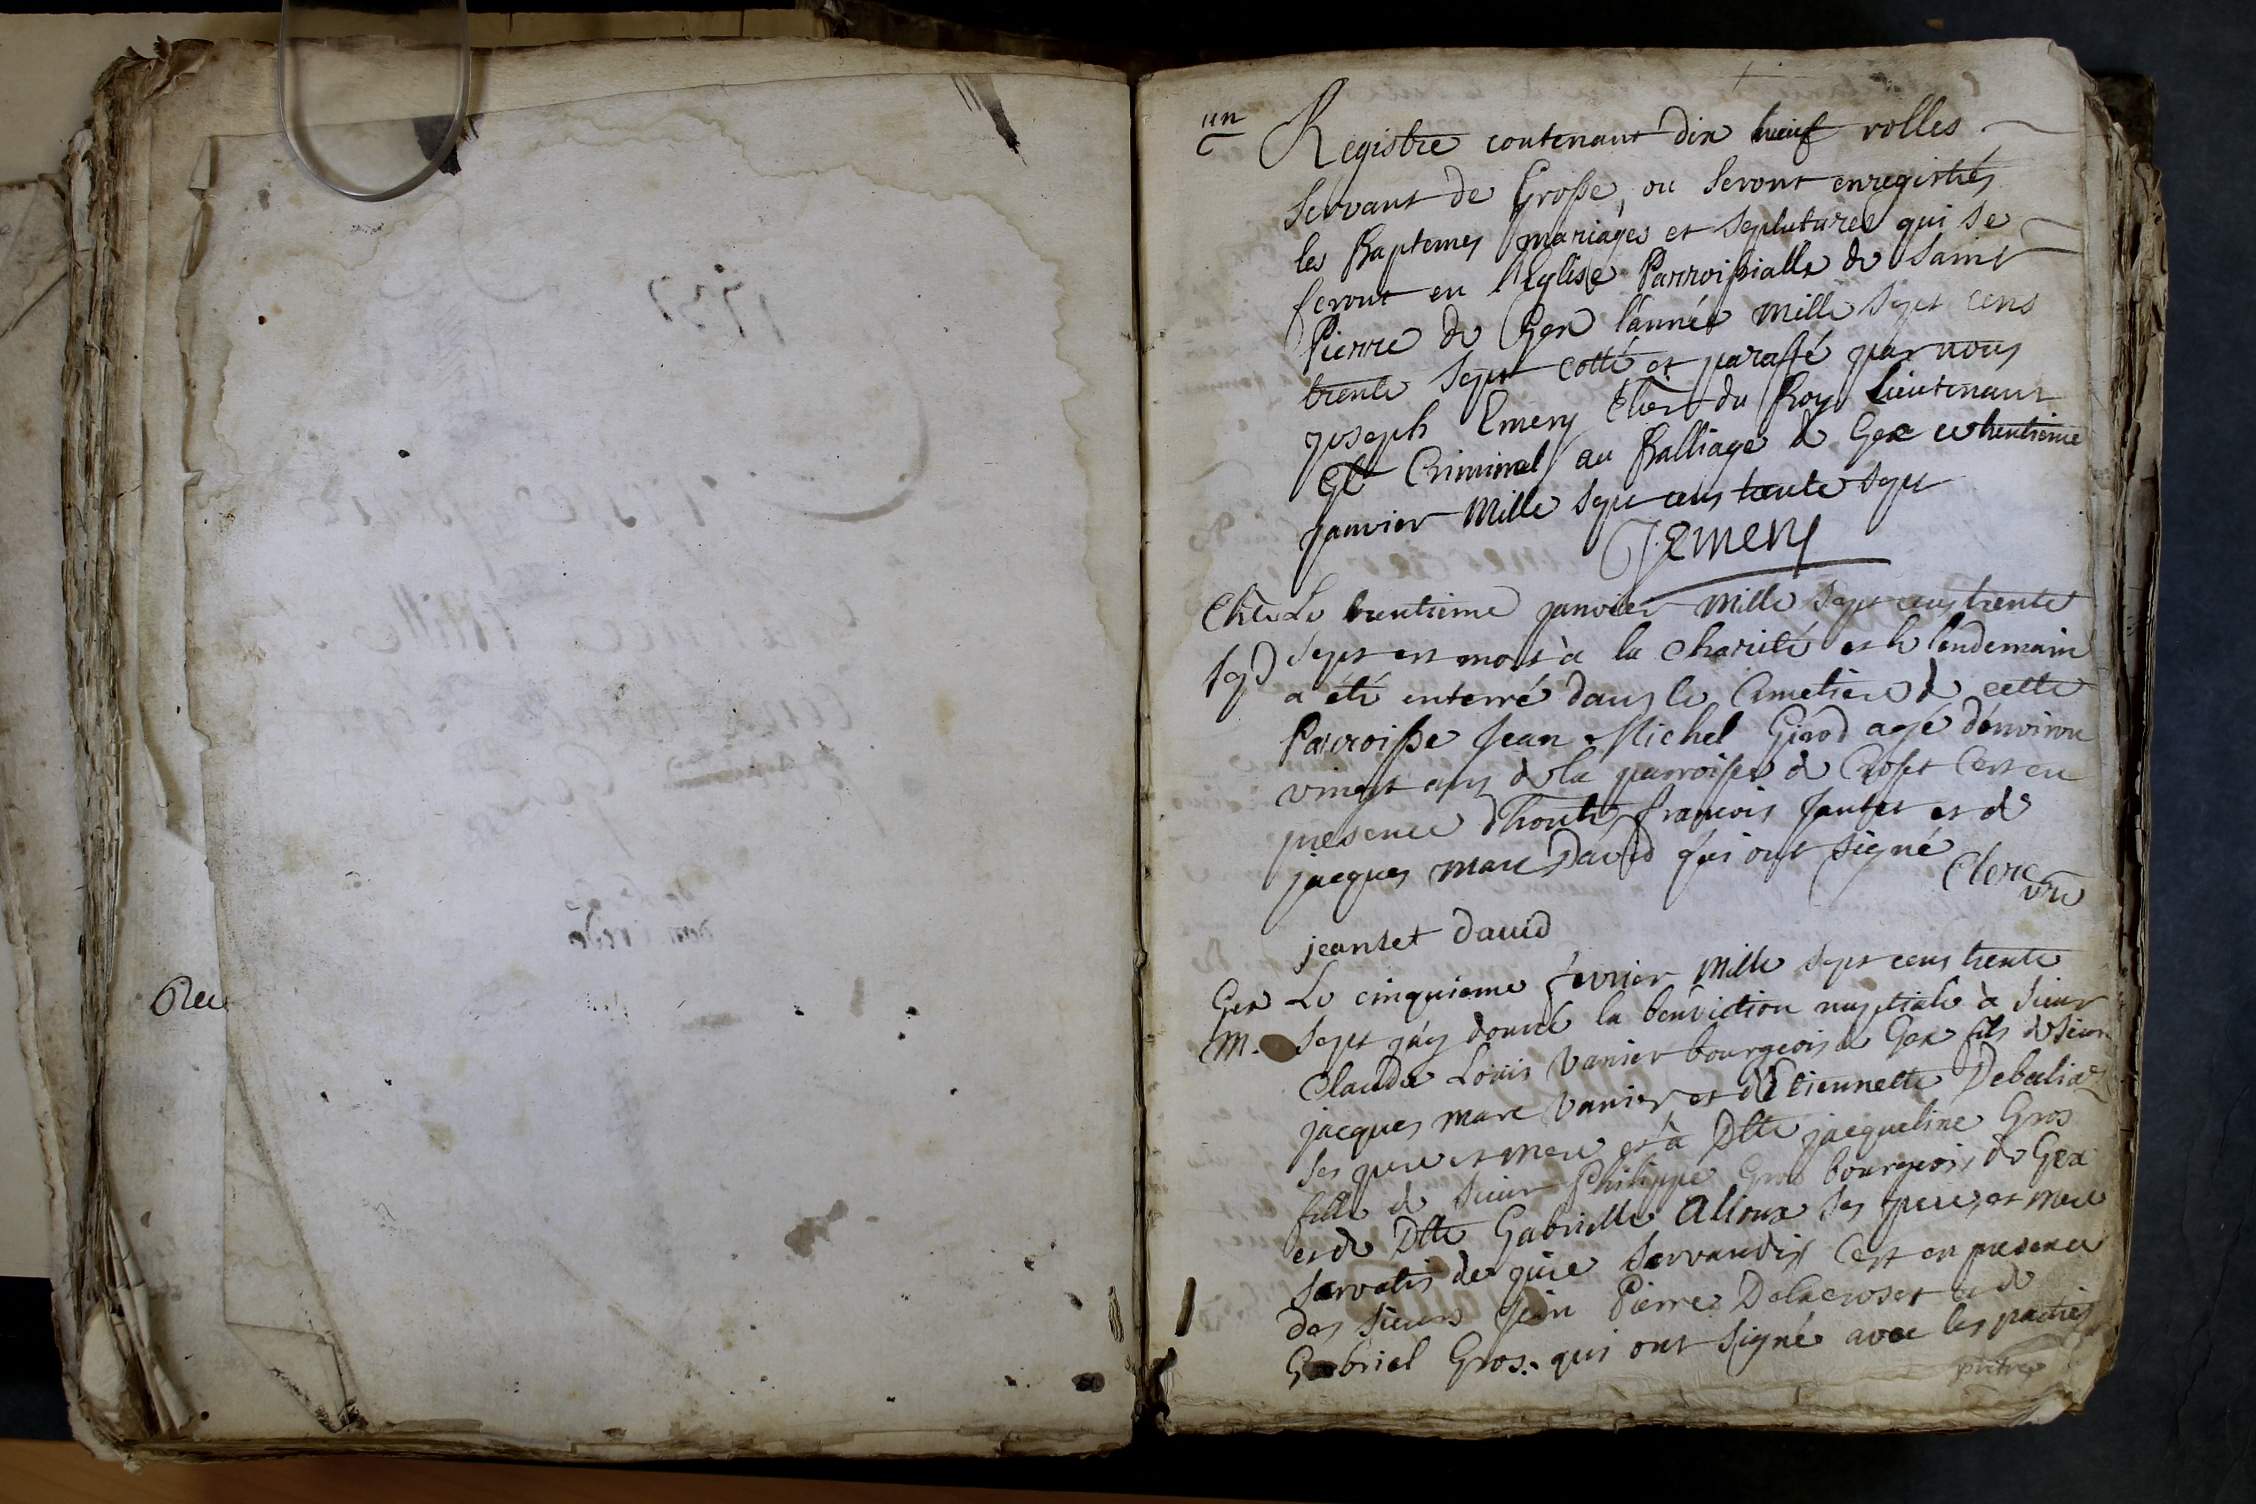 un
Registre contenant dix neuf rolles
Servant de Grosse, ou seront enregistrés
les Baptemes mariages et sepultures qui se
feront en l'Eglise Parroissialle de Saint
Pierre de Gex l'année mille sept cens
trente sept cotté et paraffé par nous
joseph Emery du Roy Lieutenant
Criminel au Balliage de Gex ce
janvier Mille sept cens trente sept
J. Emery
Le trentieme janvier Mille sept cens trente
sept est mort à la charité et le lendemain
a été enterré dans le Cimetiere de cette
Parroisse Jean Michel Girod agé d'environ
vingt ans de la parroisse de Croset C'est en
presence d'honte françois Jantet et de
jacques marc David qui ont signé
Clerc vre
jeantet david
Gex
M.
Le cinquieme fevrier Mille sept cens trente
sept j'ay donné la benediction nuptiale à sieur
Claude Louis Vanier bourgeois de Gex fils de sieur
jacques marc Vanier et d'Etiennette
ses pere et mere et à Dlle jacqueline Gros
fille de sieur Philippe Gros bourgeois de Gex
et de Dlle Gabrielle Alioux ses pere, et mere
servatis de jure servandis C'est en presence
des sieurs Jean Pierre Delacroset et de
Gabriel Gros. qui ont signé avec les parties